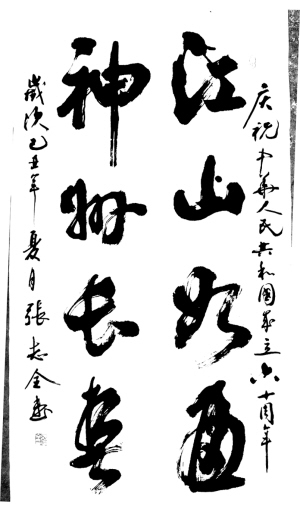 庆祝中华人民共和國成立六十周年
江山如画
神州长春
歲次己丑年夏月張志全書